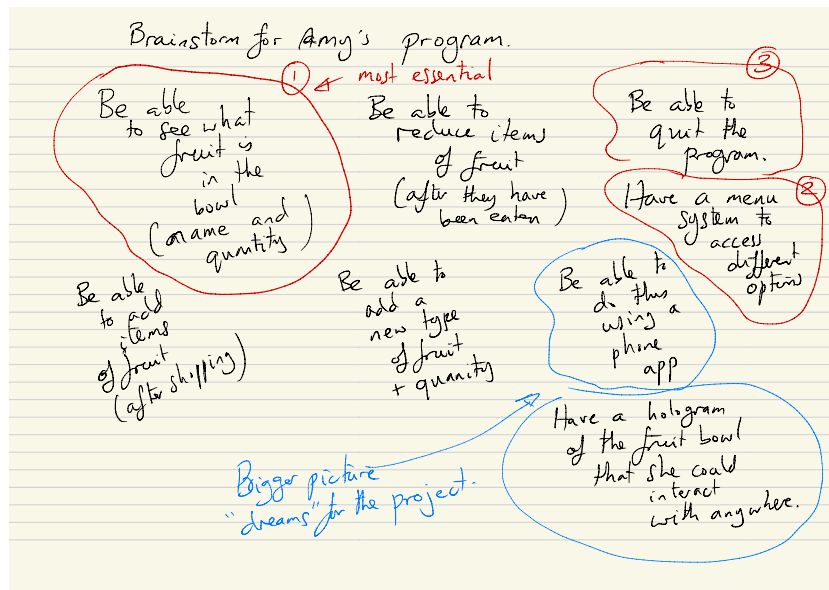 Brainstorm for Amy's program.
1
most essential
Be able
to see what
fruit is
in the
bowl
(name and
quantity)
Be able to
reduce items
of fruit
(after they have
been eaten)
3
Be able to
quit the
program.
2
Have a menu
system to
access
different
options
Be able
to add
items
of fruit
(after shopping)
Be able to
add a
new type
of fruit
+ quanity
Be able to
do this
using a
phone
app
Have a hologram
of the fruit bowl
that she could
interact
with anywhere.
Bigger picture
"dreams" for the project.